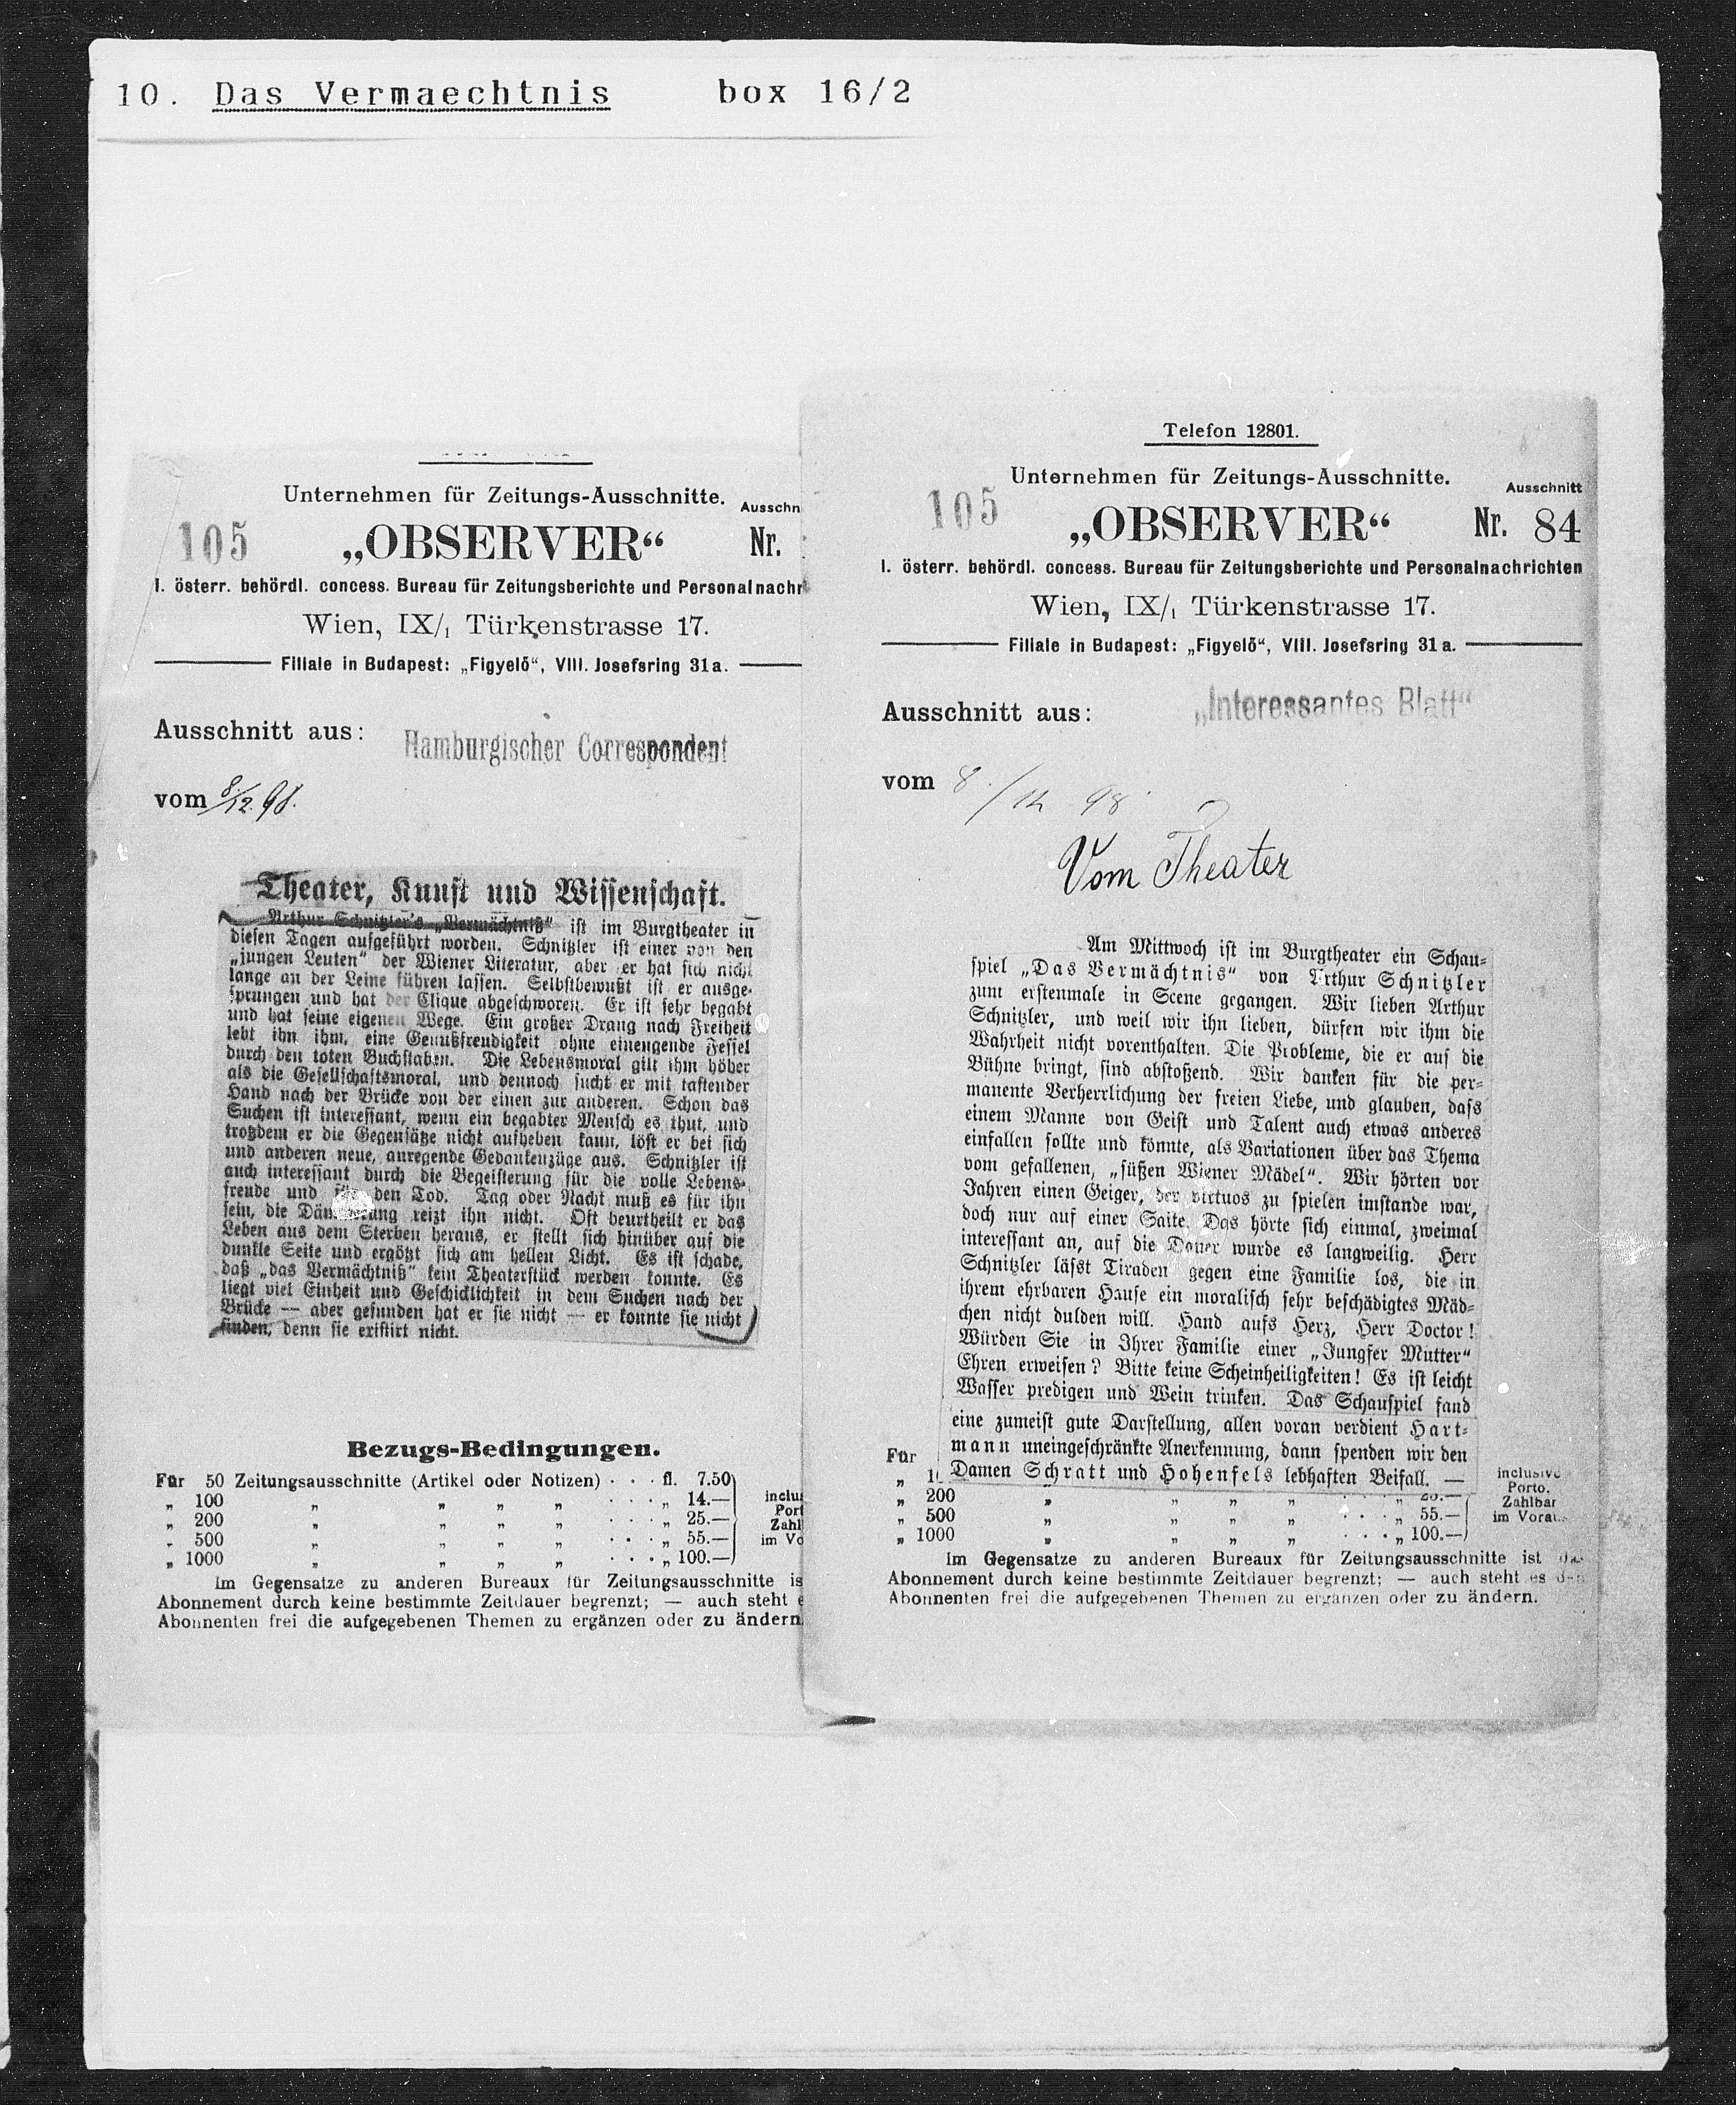 10. Das Vermaechtnis box 16/2
Unternehmen für Zeitungs-Ausschnitte.
Ausschn
105 „OBSERVER“ Nr.
I. österr. behördl. concess. Bureau für Zeitungsberichte und Personalnachr
Wien, IX/1 Türkenstrasse 17.
Filiale in Budapest: „Figyelő“, VIII. Josefsring 31a.
Ausschnitt aus: Hamburgischer Correspondent
vom 8/12. 98.
Theater, Kunst und Wissenschaft.
Arthur Schnitzler's „Vermächtniß“ ist im Burgtheater in
diesen Tagen aufgeführt worden. Schnitzler ist einer von den
„jungen Leuten“ der Wiener Literatur, aber er hat sich nicht
lange an der Leine führen lassen. Selbstbewußt ist er ausge-
sprungen und hat der Clique abgeschworen. Er ist sehr begabt
und hat seine eigenen Wege. Ein großer Drang nach Freiheit
lebt ihn ihm, eine Genußfreudigkeit ohne einengende Fessel
durch den toten Buchstaben. Die Lebensmoral gilt ihm höher
als die Gesellschaftsmoral, und dennoch sucht er mit tastender
Hand nach der Brücke von der einen zur anderen. Schon das
Suchen ist interessant, wenn ein begabter Mensch es thut, und
trotzdem er die Gegensätze nicht aufheben kann, löst er bei sich
und anderen neue, anregende Gedankenzüge aus. Schnitzler ist
auch interessant durch die Begeisterung für die volle Lebens-
freude und für den Tod. Tag oder Nacht muß es für ihn
sein, die reizt ihn nicht. Oft beurtheilt er das
Leben aus dem Sterben heraus, er stellt sich hinüber auf die
dunkle Seite und ergötzt sich am hellen Licht. Es ist schade,
daß „das Vermächtniß“ kein Theaterstück werden konnte. Es
liegt viel Einheit und Geschicklichkeit in dem Suchen nach der
Brücke — aber gefunden hat er sie nicht — er konnte sie nicht
finden, denn sie existirt nicht.
Bezugs-Bedingungen.
Für 50 Zeitungsausschnitte (Artikel oder Notizen) · · · fl. 7.50
„ 100 „ „ „ „ · · · „ 14.— inclu
„ 200 „ „ „ „ · · · „ 25.— Port
„ 500 „ „ „ „ · · · „ 55.— Zahl
„ 1000 „ „ „ „ · · · „ 100.— im Vo
Im Gegensatze zu anderen Bureaux für Zeitungsausschnitte is
Abonnement durch keine bestimmte Zeitdauer begrenzt; — auch steht e
Abonnenten frei die aufgegebenen Themen zu ergänzen oder zu ändern.
Telefon 12801.
Unternehmen für Zeitungs-Ausschnitte.
Ausschnitt
105 „OBSERVER“ Nr. 84
I. österr. behördl. concess. Bureau für Zeitungsberichte und Personalnachrichten
Wien, IX/1 Türkenstrasse 17.
Filiale in Budapest: „Figyelő“, VIII. Josefsring 31a.
Ausschnitt aus: „Interessantes Blatt“
vom 8./12 98
Vom Theater
Am Mittwoch ist im Burgtheater ein Schau-
spiel „Das Vermächtnis“ von Arthur Schnitzler
zum erstenmale in Scene gegangen. Wir lieben Arthur
Schnitzler, und weil wir ihn lieben, dürfen wir ihm die
Wahrheit nicht vorenthalten. Die Probleme, die er auf die
Bühne bringt, sind abstoßend. Wir danken für die per-
manente Verherrlichung der freien Liebe, und glauben, dass
einem Manne von Geist und Talent auch etwas anderes
einfallen sollte und könnte, als Variationen über das Thema
vom gefallenen, „süßen Wiener Mädel“. Wir hörten vor
Jahren einen Geiger, der virtuos zu spielen imstande war,
doch nur auf einer Saite. Das hörte sich einmal, zweimal
interessant an, auf die Dauer wurde es langweilig. Herr
Schnitzler lässt Tiraden gegen eine Familie los, die in
ihrem ehrbaren Hause ein moralisch sehr beschädigtes Mäd-
chen nicht dulden will. Hand aufs Herz, Herr Doctor!
Würden Sie in Ihrer Familie einer „Jungfer Mutter“
Ehren erweisen? Bitte keine Scheinheiligkeiten! Es ist leicht
Wasser predigen und Wein trinken. Das Schauspiel fand
eine zumeist gute Darstellung, allen voran verdient Hart-
mann uneingeschränkte Anerkennung, dann spenden wir den
Damen Schratt und Hohenfels lebhaften Beifall. —
Für
„ 1 inclusive
„ 200 „ „ „ „ Porto.
„ 500 „ „ „ „ · · · „ 55.— Zahlbar
„ 1000 „ „ „ „ · · · „ 100.— im Vorau
Im Gegensatze zu anderen Bureaux für Zeitungsausschnitte ist das
Abonnement durch keine bestimmte Zeitdauer begrenzt; — auch steht es den
Abonnenten frei die aufgegebenen Themen zu ergänzen oder zu ändern.